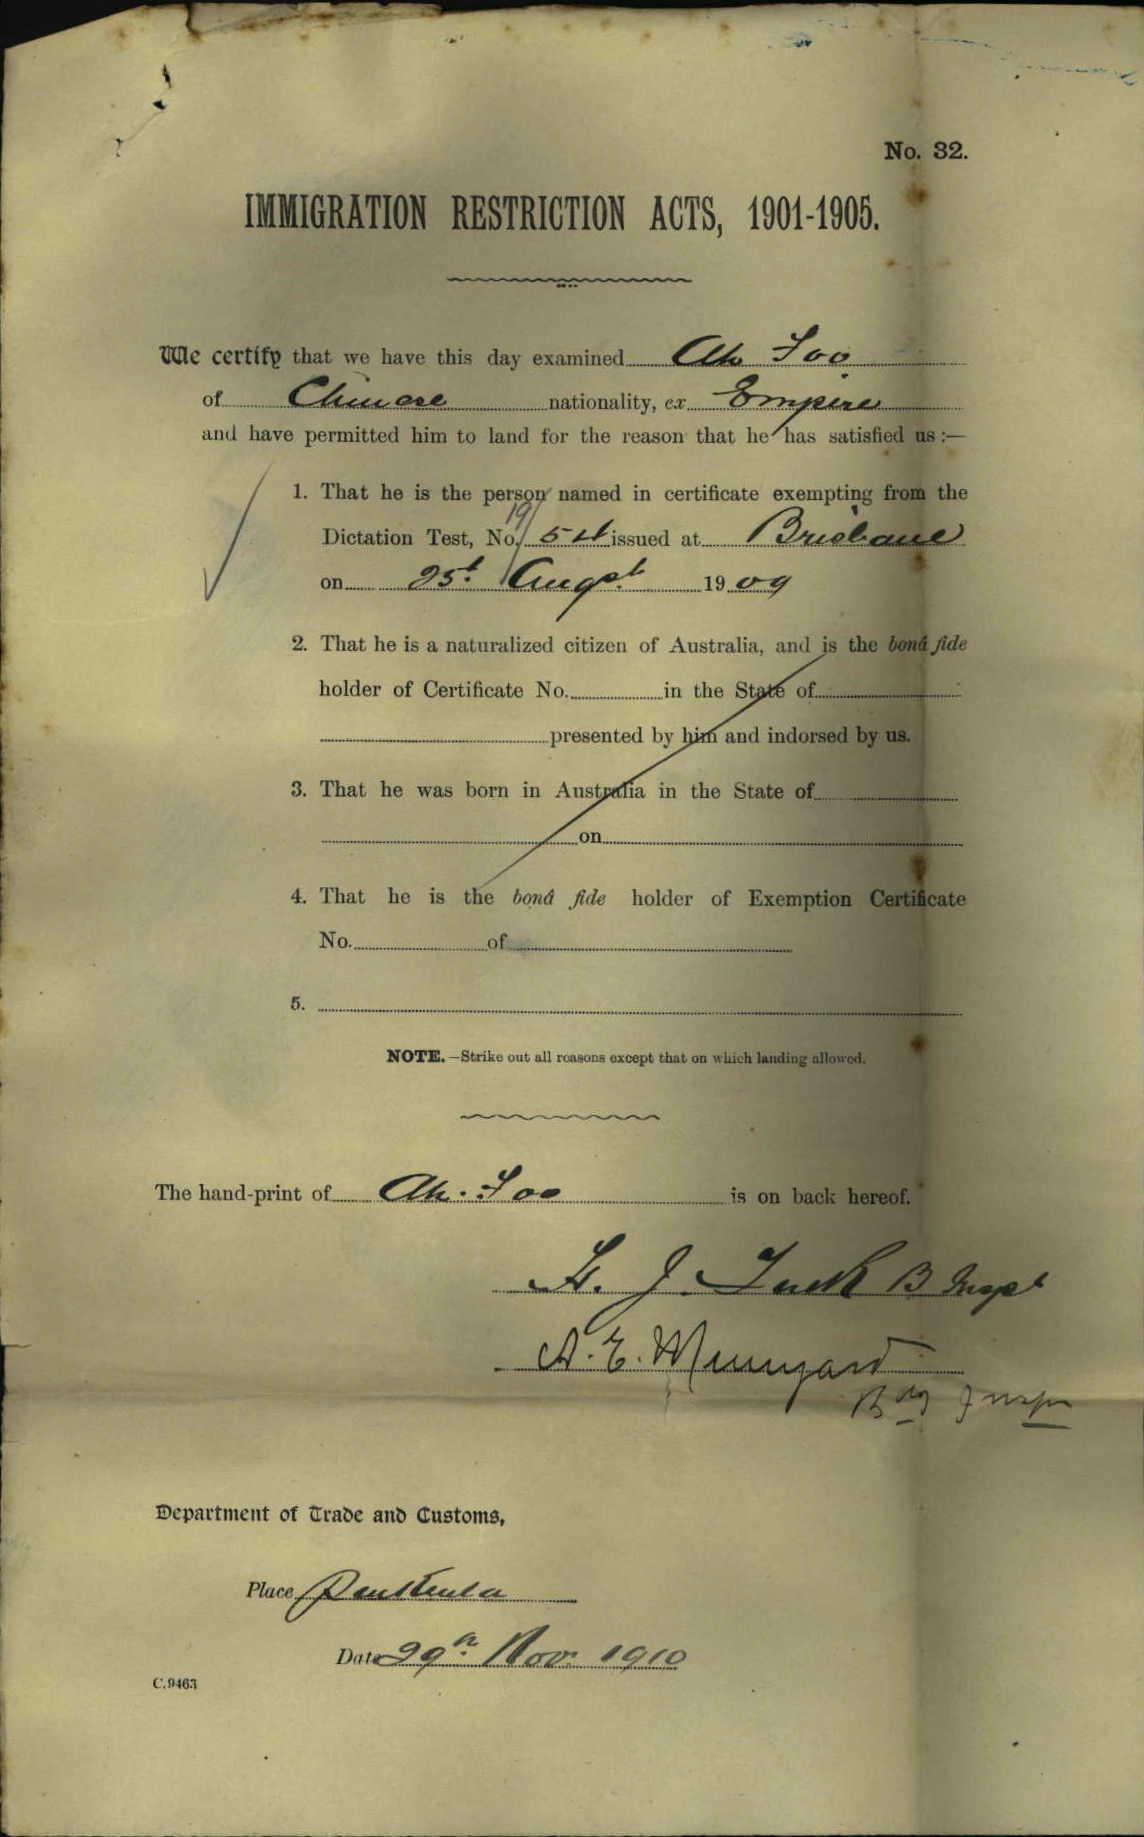 No. 32.
IMMIGRATION RESTRICTION ACTS, 1901-1905.
We certify that we have this day examined Ah Foo
of Chinese nationality, ex Empire
and have permitted him to land for the reason that he has satisfied us :—
1. That he is the person named in certificate exempting from the
19/
Dictation Test, No. 54 issued at Brisbane
on 25t Augst 1909
2. That he is a naturalized citizen of Australia, and is the bonâ fide
holder of Certificate No. in the State of
presented by him and indorsed by us.
3. That he was born in Australia in the State of
on
4. That he is the bonâ fide holder of Exemption Certificate
No. of
5.
NOTE.—Strike out all reasons except that on which landing allowed.
The hand-print of Ah. Foo is on back hereof.
J. B Inspt
A. E.
Department of Trade and Customs,
Place
Date 29th Nov. 1910
C.9463